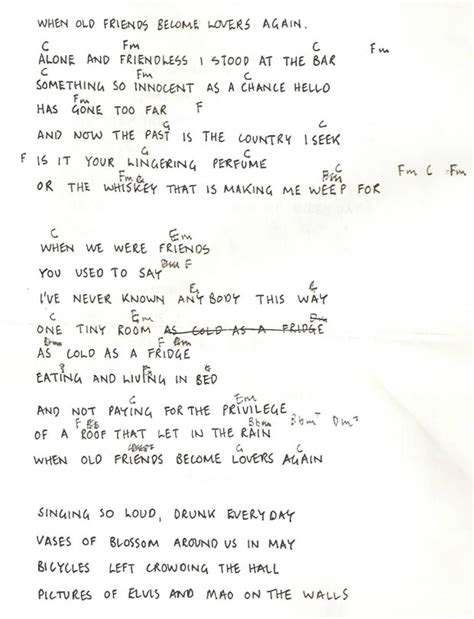 WHEN OLD FRIENDS BECOME LOVERS AGAIN.
C Fm C Fm
ALONE AND FRIENDLESS I STOOD AT THE BAR
C Fm C
SOMETHING SO INNOCENT AS A CHANCE HELLO
Fm
HAS GONE TOO FAR F
G C
AND NOW THE PAST IS THE COUNTRY I SEEK
F G
IS IT YOUR LINGERING PERFUME
Fm C Fm C Fm
OR THE WHISKEY THAT IS MAKING ME WEEP FOR
C Em
WHEN WE WERE FRIENDS
F
YOU USED TO SAY
I'VE NEVER KNOWN ANYBODY THIS WAY
C Em
ONE TINY ROOM AS COLD AS A FRIDGE
Dm F
AS COLD AS A FRIDGE
EATING AND LIVING IN BED
C Em
AND NOT PAYING FOR THE PRIVILEGE
F Bbm Bbm7 Dm7
OF A ROOF THAT LET IN THE RAIN
G C
WHEN OLD FRIENDS BECOME LOVERS AGAIN
SINGING SO LOUD, DRUNK EVERYDAY
VASES OF BLOSSOM AROUND US IN MAY
BICYCLES LEFT CROWDING THE HALL
PICTURES OF ELVIS AND MAO ON THE WALLS